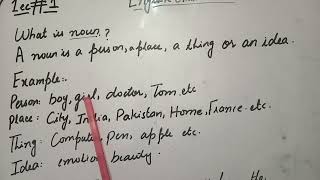 Lec#1 English
What is noun?
A noun is a person, a place, a thing or an idea.
Example:-
Person: boy, girl, doctor, Tom etc
Place: City, India, Pakistan, Home, France etc.
Thing: Computer, Pen, apple etc.
Idea: emotion beauty.